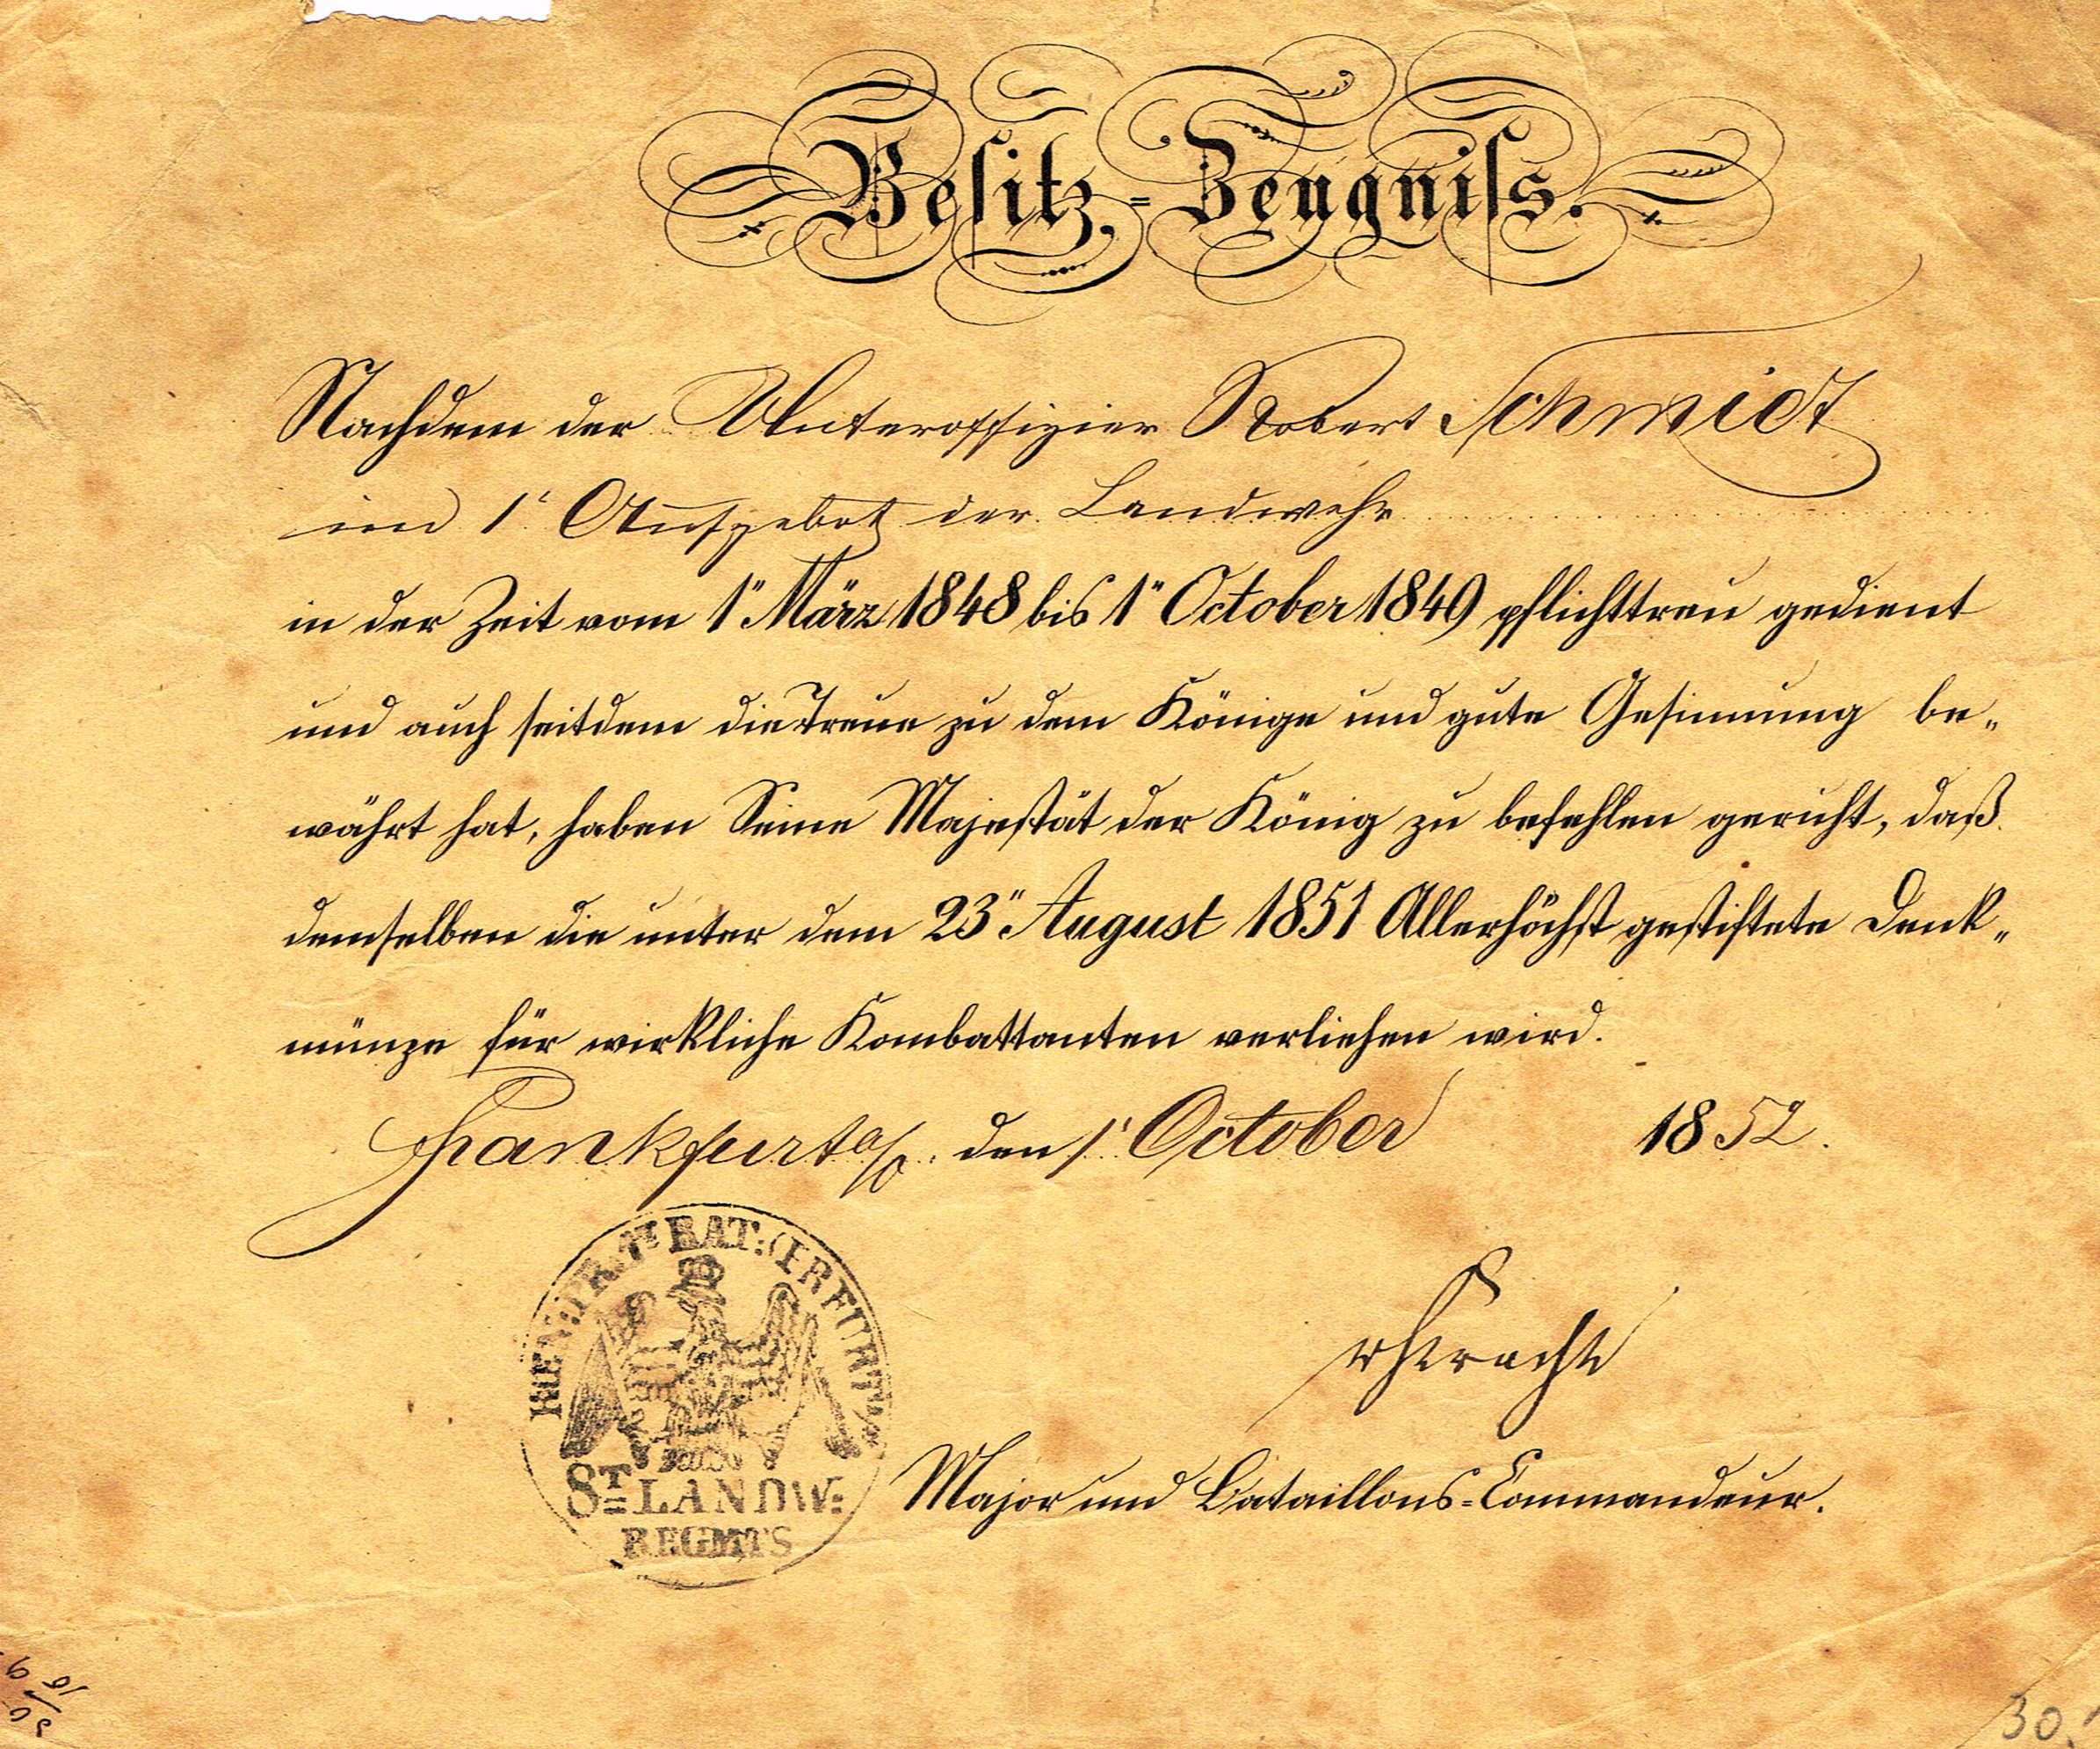 Besitz-Zeugniß.
Nachdem der Unteroffizier Robert Schmidt
im 1ˢ Aufgebot der Landwehr
in der Zeit vom 1" März 1848 bis 1" October 1849 pflichttreu gedient
und auch seitdem die Treue zu dem Könige und gute Gesinnung be„
währt hat, haben Seine Majestät der König zu befehlen geruht, daß
demselben die unter dem 23" August 1851 Allerhöchst gestiftete Denk„
münze für wirkliche Kombattanten verliehen wird.
Frankfurt a/o. den 1' October 1852.
BAT:
8T LANDW:
REGMTS
Major und Bataillons-Commandeur.
30.